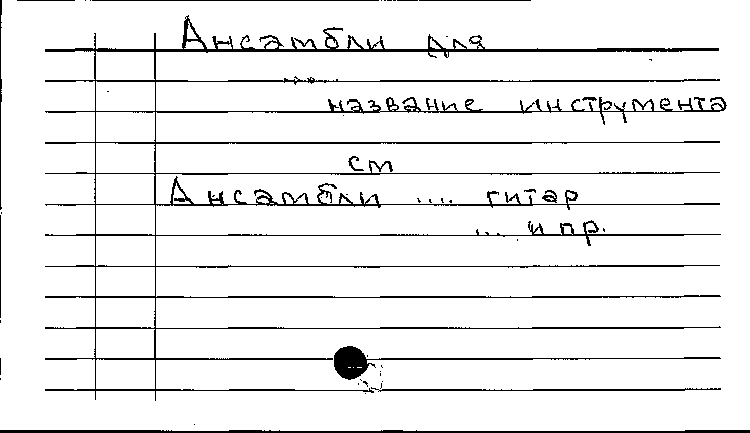 Ансамбли для
....
название инструмента
см
Ансамбли .... гитар
... и пр.